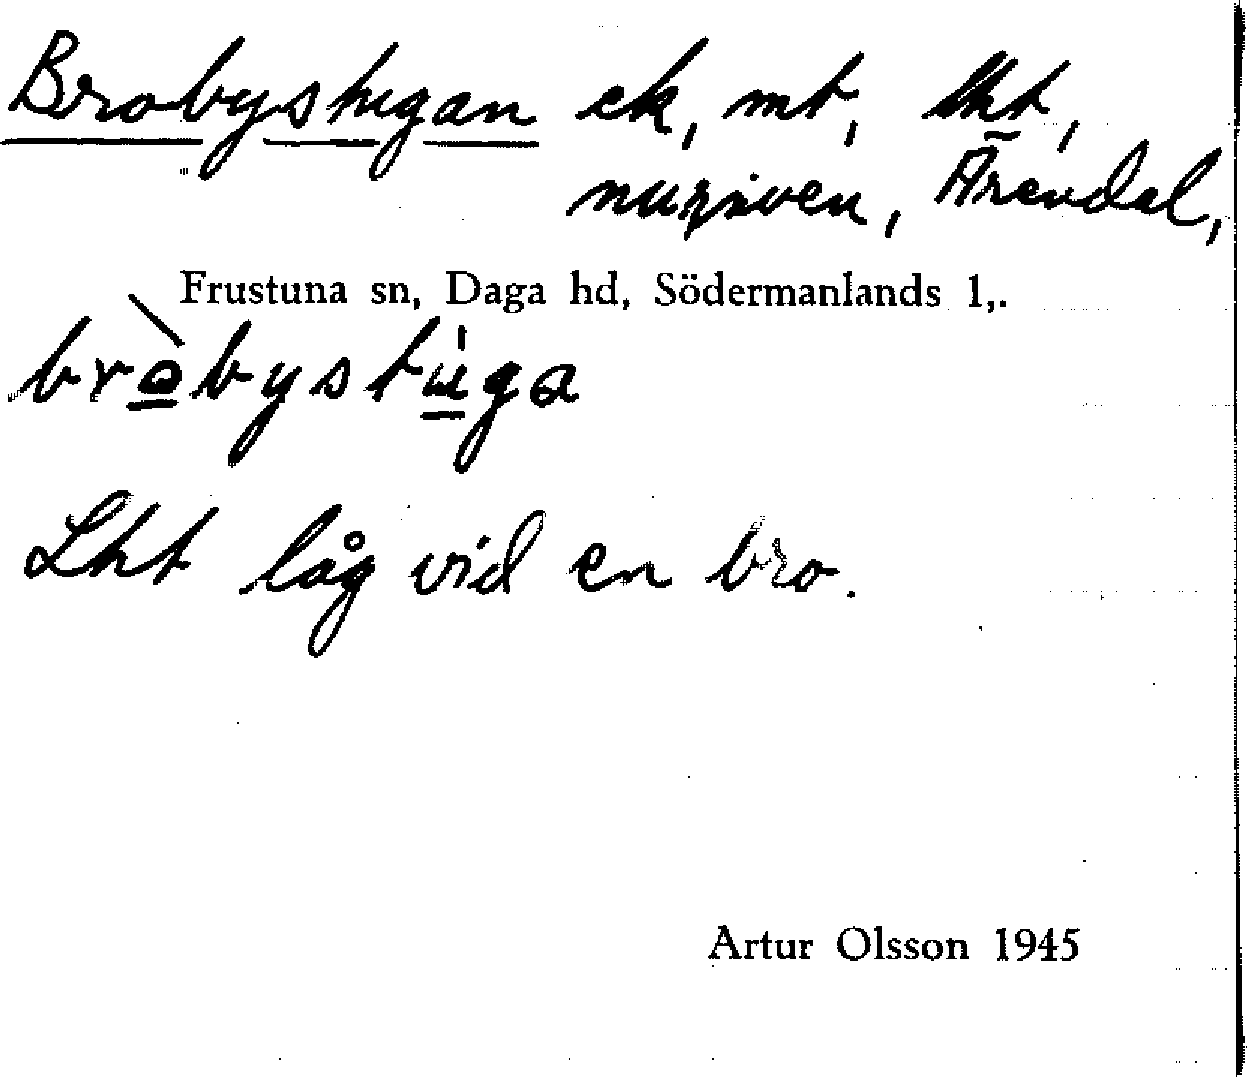 Brobystugan ek, mt, lht,
nurriven, Ärendal,
Frustuna sn, Daga hd, Södermanlands l,.
bròbystúga
Lht låg vid en bro.
Artur Olsson 1945